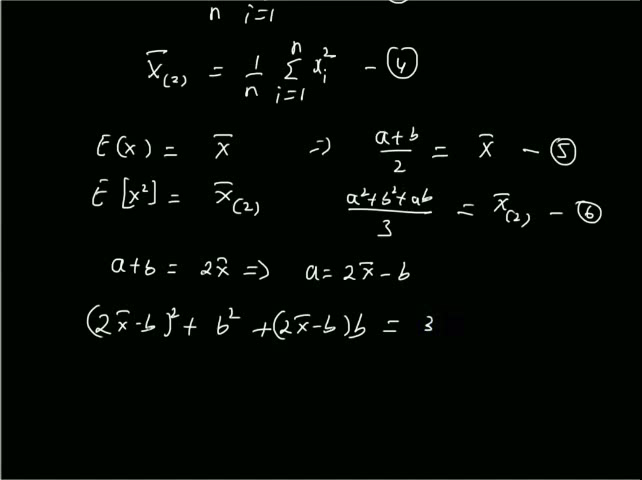 n i=1
X̄(2) = 1/n Σ(i=1 to n) xᵢ² - ④
E(x) = x̄ => (a+b)/2 = x̄ - ⑤
E[x²] = x̄(2) (a²+b²+ab)/3 = x̄(2) - ⑥
a+b = 2x̄ => a = 2x̄ - b
(2x̄-b)² + b² + (2x̄-b)b = 3